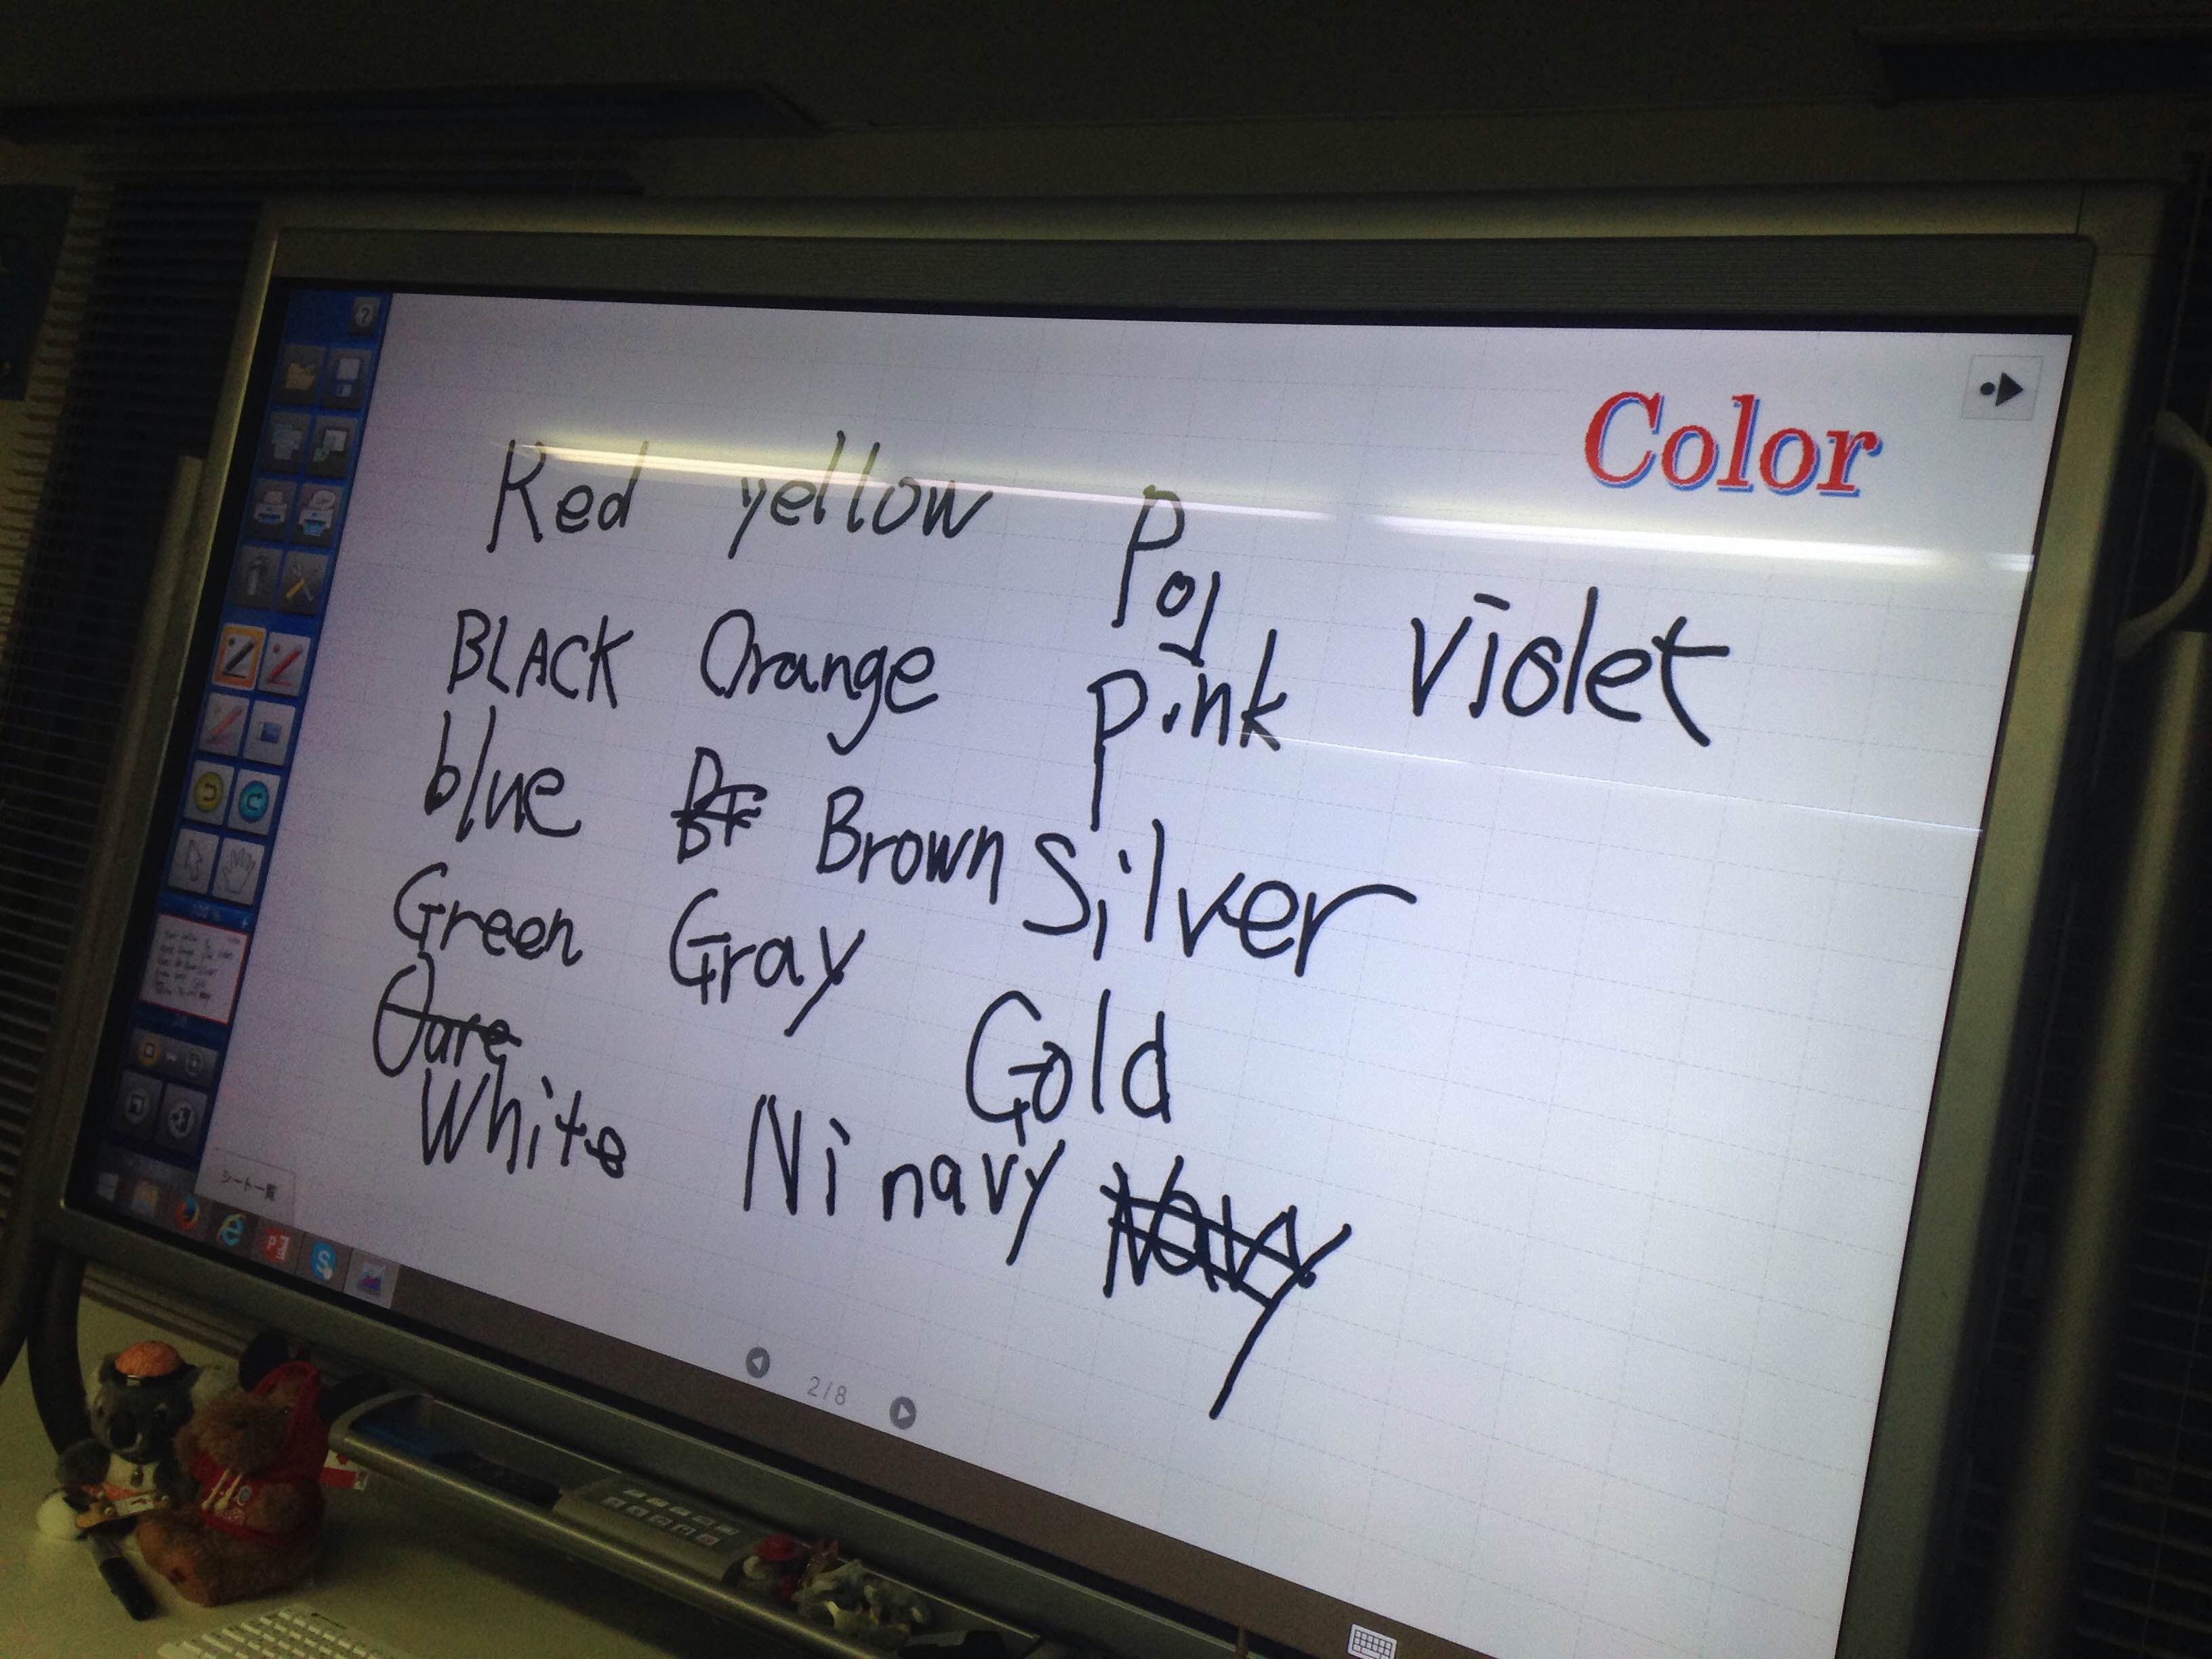 Color
Red yellow P
oj
BLACK Orange Pink Violet
blue Br Brown Silver
Green Gray
Oare
Gold
White Ni navy Navy
シート一覧
2/8